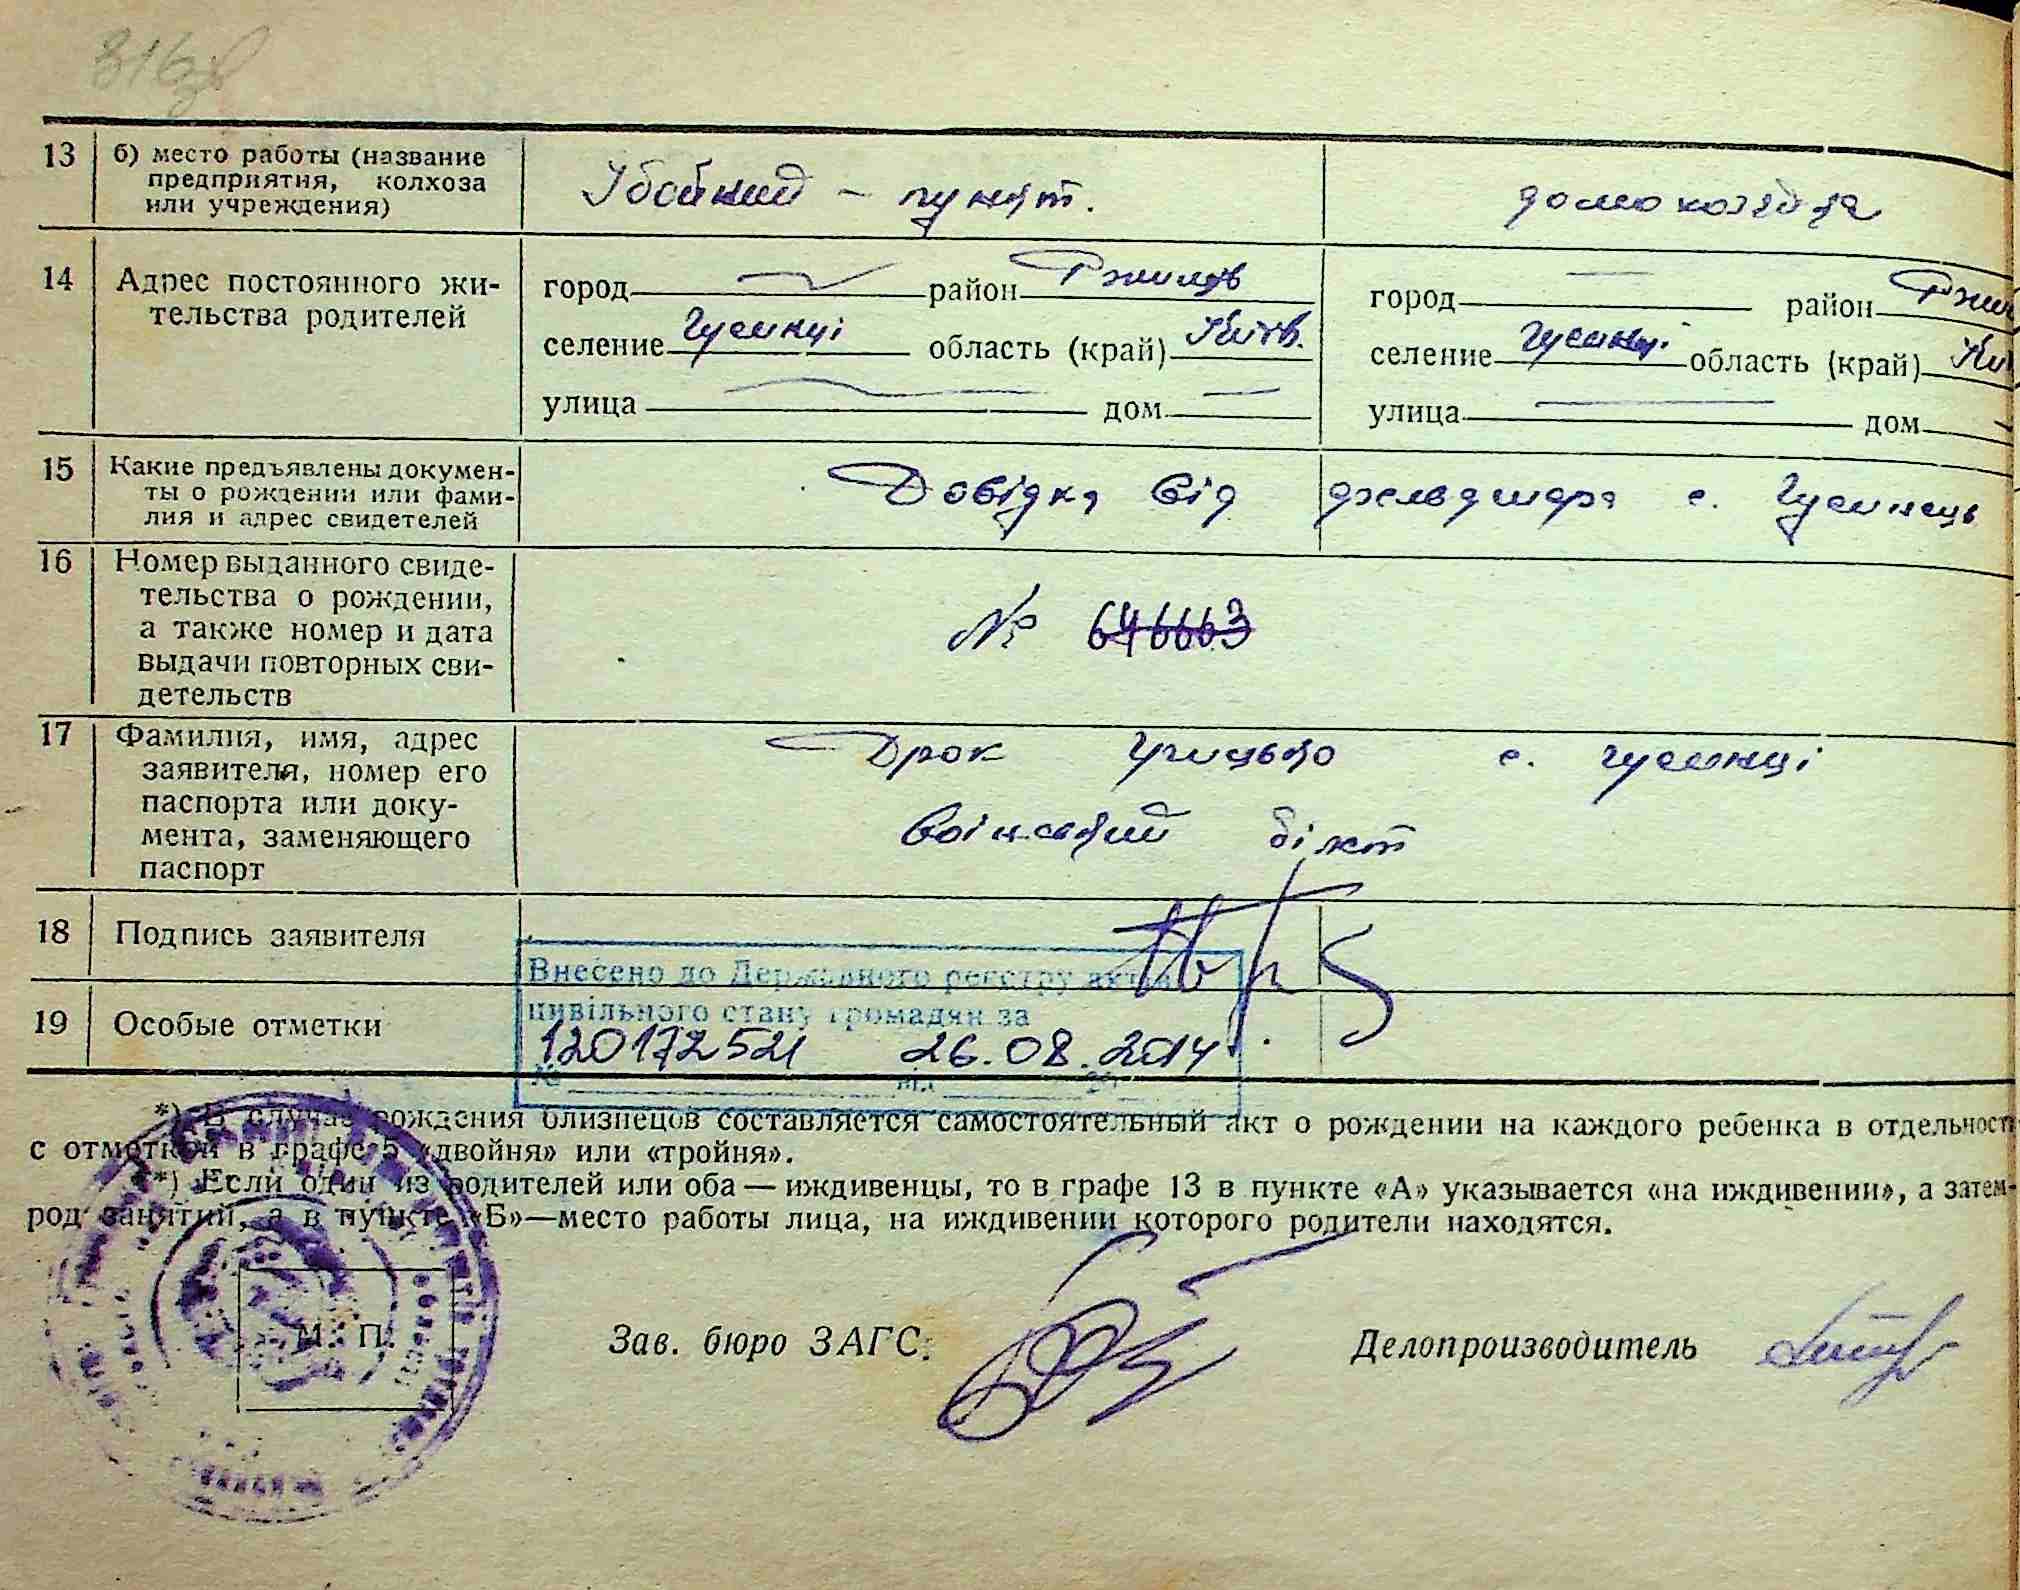 316зв
13 б) место работы (название
предприятия, колхоза
или учреждения)
Убойний - пункт.
домохозяйка
14 Адрес постоянного жи-
тельства родителей
город — район Ржищів
селение Гусинці область (край) Київ.
улица — дом —
город — район Ржи
селение Гусинці область (край) Ки
улица — дом —
15 Какие предъявлены докумен-
ты о рождении или фами-
лия и адрес свидетелей
Довідка від фельдшера с. Гусинець
16 Номер выданного свиде-
тельства о рождении,
а также номер и дата
выдачи повторных сви-
детельств
№ 646663
17 Фамилия, имя, адрес
заявителя, номер его
паспорта или доку-
мента, заменяющего
паспорт
Дрок Грицько с. Гусинці
воінський білєт
18 Подпись заявителя
19 Особые отметки
Внесено до Державного реєстру актів
цивільного стану громадян за
№ 12017252 від 26.08.2014
*) В случае рождения близнецов составляется самостоятельный акт о рождении на каждого ребенка в отдельност
с отметкой в графе 5 «двойня» или «тройня».
**) Если один из родителей или оба — иждивенцы, то в графе 13 в пункте «А» указывается «на иждивении», а затем-
род занятий, а в пункте «Б»—место работы лица, на иждивении которого родители находятся.
М. П.
Зав. бюро ЗАГС:
Делопроизводитель